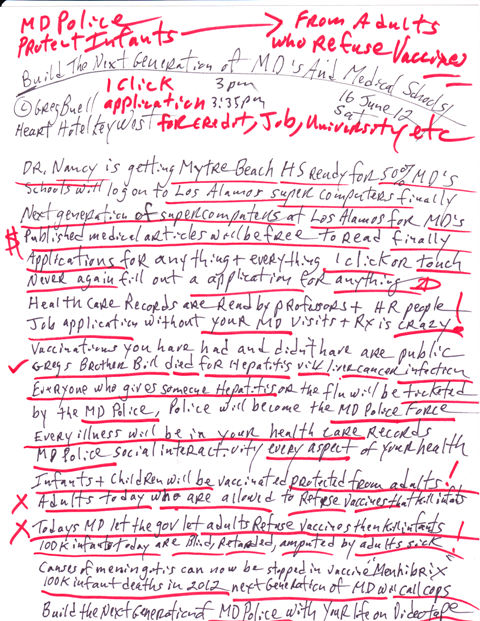 MD Police → From Adults
Protect Infants who Refuse Vaccines
Build The Next Generation of MD's And Medical Schools
1 click 3pm 16 June 12
© Greg Buell application 3:35pm Sat
Heart Hotel Key West for credit, Job, University etc
DR. Nancy is getting Mytre Beach HS Ready for 50% MD's
Schools will log on to Los Alamos super computers finally
Next generation of supercomputers at Los Alamos for MD's
$ Published medical articles will be free to read finally
Applications for anything + everything 1 click or touch
Never again fill out a application for anything
Health Care Records are Read by professors + HR people !
Job application without your MD visits + Rx is crazy!
Vaccinations you have had and didn't have are public
✓ Gregs Brother Bill died for Hepatitis liver cancer infection
Everyone who gives someone Hepatitis or the flu will be ticketed
by the MD Police, Police will become the MD Police Force
Every illness will be in your health care Records
MD Police Social interactivity every aspect of your health
Infants + Children will be vaccinated protected from adults!
X Adults today who are allowed to Refuse vaccines that kill infants
X Todays MD let the gov let adults Refuse vaccines then kill infants !
100K infants today are Blind, Retarded, amputed by adults sick
Causes of meningitis can now be stopped in vaccine "Menhibrix"
100K infant deaths in 2012 next Generation of MD will call cops
Build the Next Generation of MD Police with Your life on Videotape